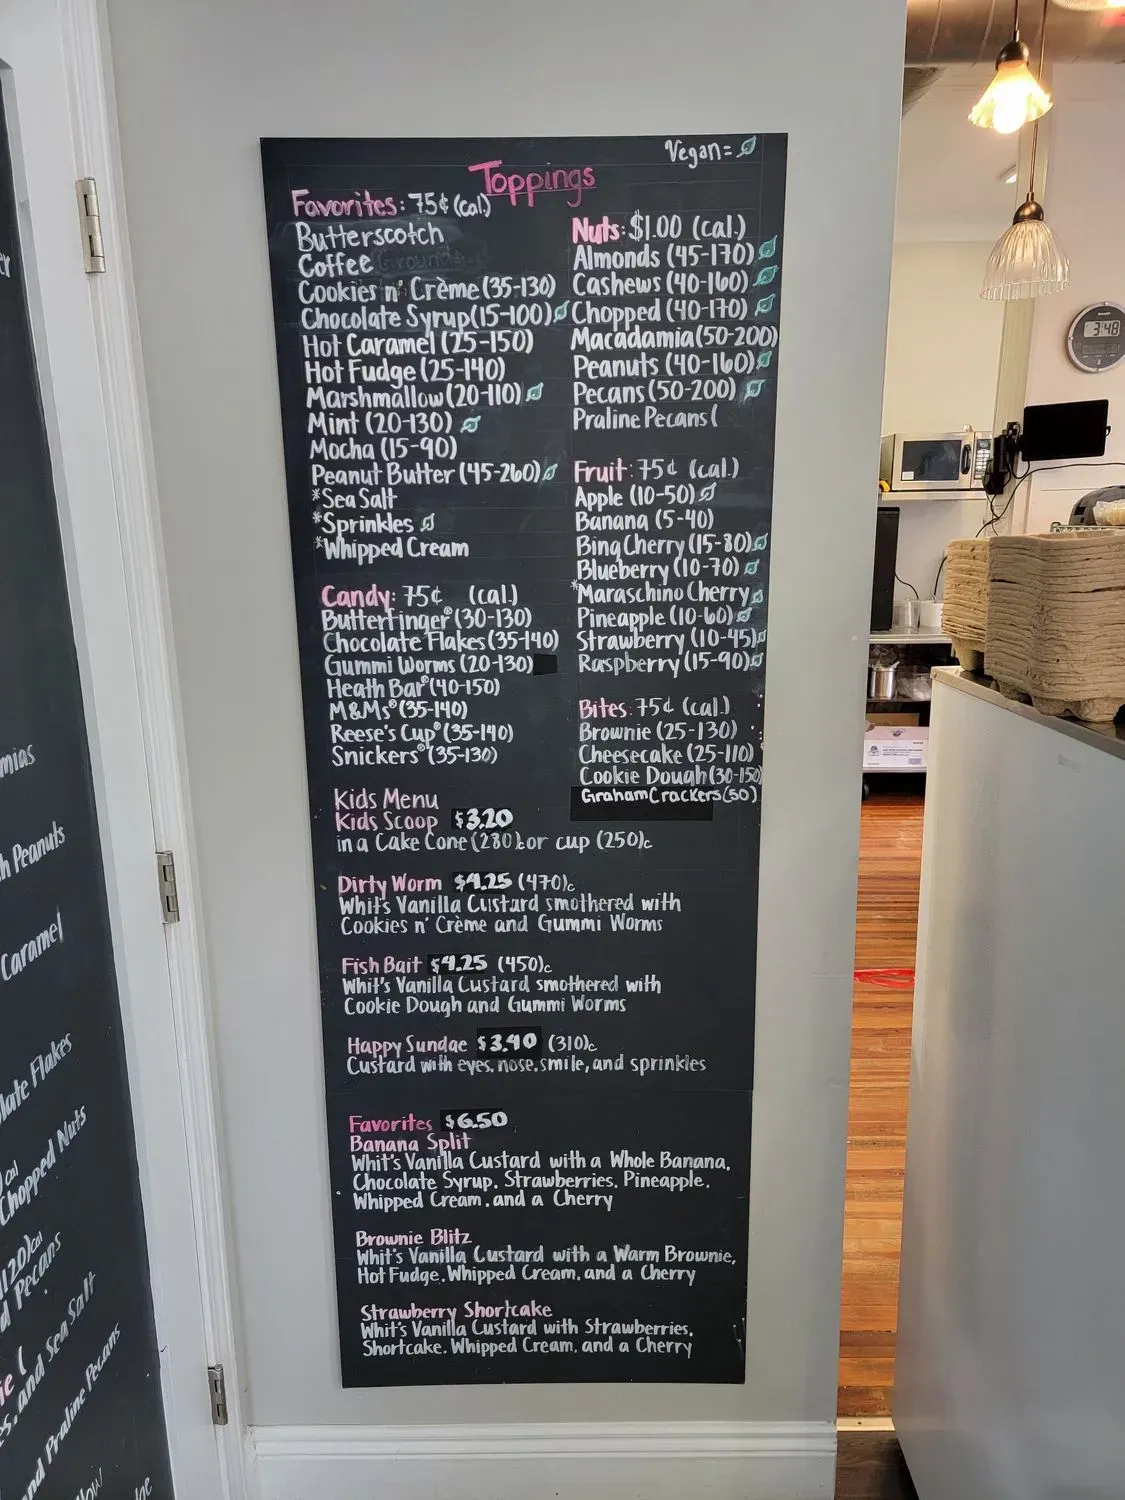 Vegan=
Toppings
Favorites: 75¢ (cal.)
Butterscotch
Coffee Grounds
Cookies n' Crème (35-130)
Chocolate Syrup (15-100)
Hot Caramel (25-150)
Hot Fudge (25-140)
Marshmallow (20-110)
Mint (20-130)
Mocha (15-90)
Peanut Butter (45-260)
*Sea Salt
*Sprinkles
*Whipped Cream
Candy: 75¢ (cal.)
Butterfinger® (30-130)
Chocolate Flakes (35-140)
Gummi Worms (20-130)
Heath Bar® (40-150)
M&Ms® (35-140)
Reese's Cup® (35-140)
Snickers® (35-130)
Nuts: $1.00 (cal.)
Almonds (45-170)
Cashews (40-160)
Chopped (40-170)
Macadamia (50-200)
Peanuts (40-160)
Pecans (50-200)
Praline Pecans (
Fruit: 75¢ (cal.)
Apple (10-50)
Banana (5-40)
Bing Cherry (15-80)
Blueberry (10-70)
*Maraschino Cherry
Pineapple (10-60)
Strawberry (10-45)
Raspberry (15-90)
Bites: 75¢ (cal.)
Brownie (25-130)
Cheesecake (25-110)
Cookie Dough (30-150)
Graham Crackers (50)
Kids Menu
Kids Scoop $3.20
in a Cake Cone (280)c or cup (250)c
Dirty Worm $4.25 (470)c
Whit's Vanilla Custard smothered with
Cookies n' Crème and Gummi Worms
Fish Bait $4.25 (450)c
Whit's Vanilla Custard smothered with
Cookie Dough and Gummi Worms
Happy Sundae $3.40 (310)c
Custard with eyes, nose, smile, and sprinkles
Favorites $6.50
Banana Split
Whit's Vanilla Custard with a Whole Banana,
Chocolate Syrup, Strawberries, Pineapple,
Whipped Cream, and a Cherry
Brownie Blitz
Whit's Vanilla Custard with a Warm Brownie,
Hot Fudge, Whipped Cream, and a Cherry
Strawberry Shortcake
Whit's Vanilla Custard with Strawberries,
Shortcake, Whipped Cream, and a Cherry
3:48
Peanuts
Caramel
Flakes
Chopped Nuts
Pecans
and Sea Salt
and Praline Pecans